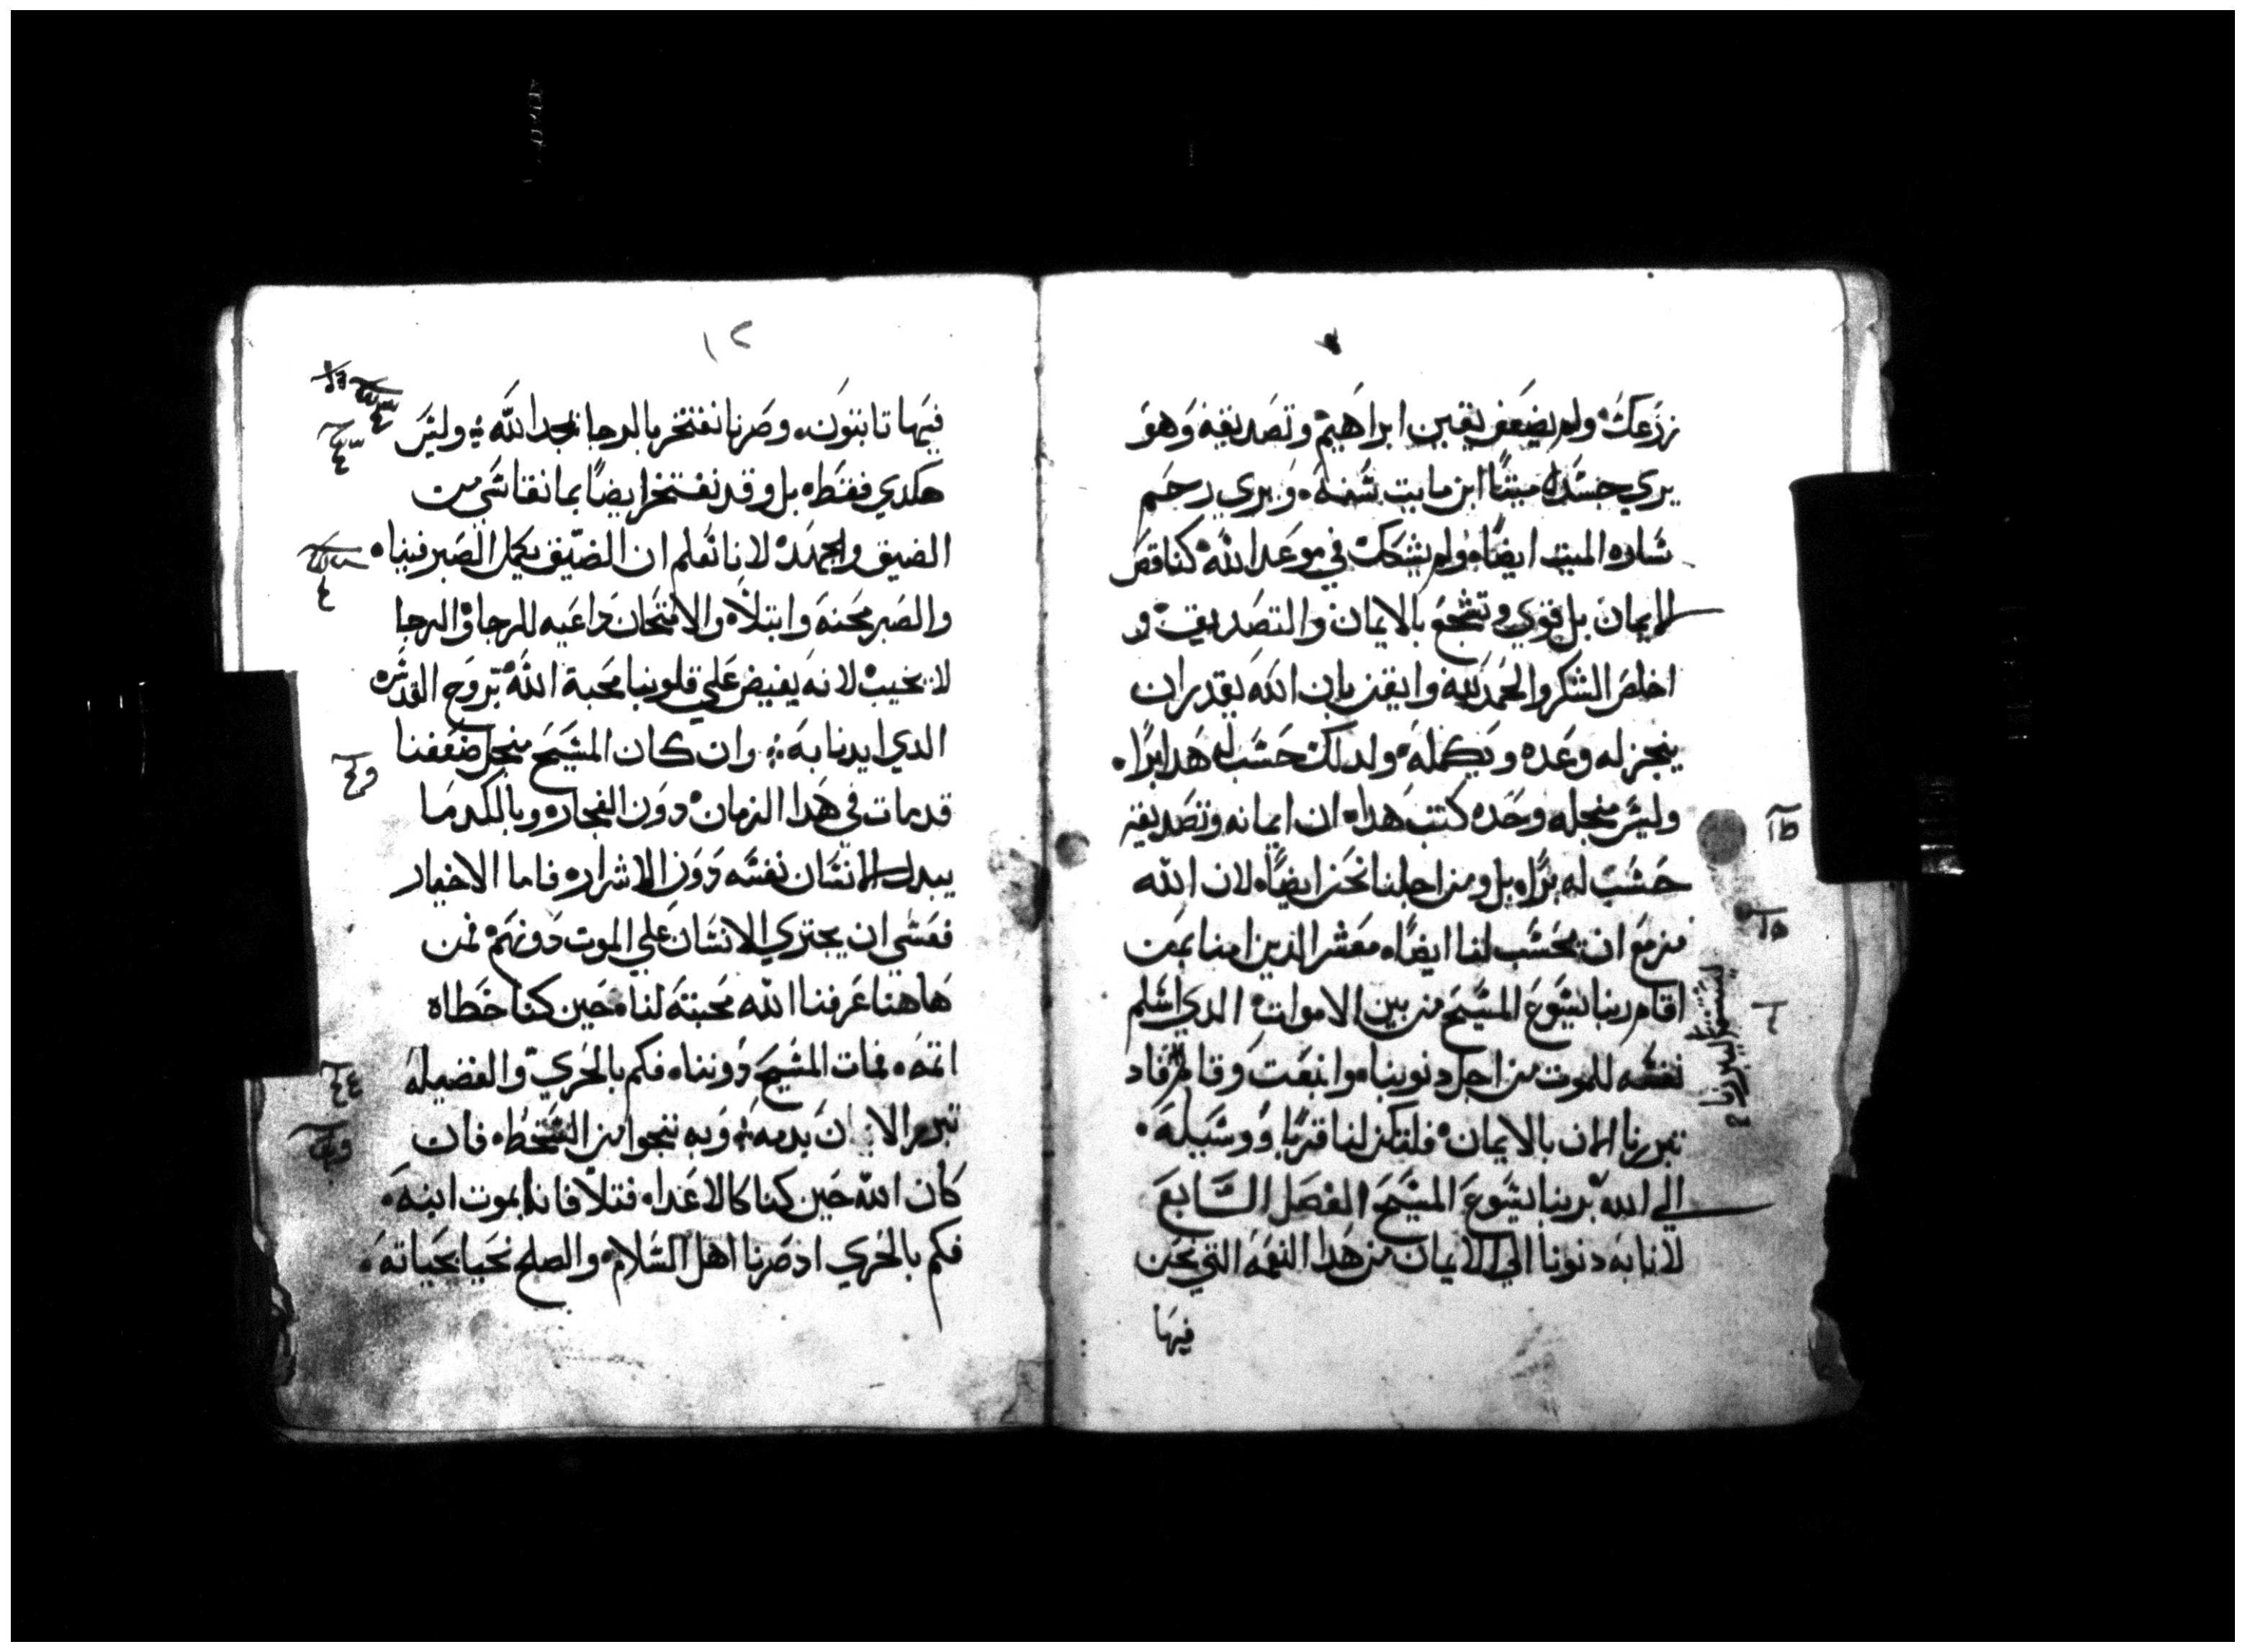 زرعك ولم يضعف يقين ابراهيم وتصديقه وهو
يري جسده ميتًا ابن مايت سنه ويري رحم
ساره الميت ايضًا ولم يشكك في موعد الله كناقص
الايمان بل قوي وتشجع بالايمان والتصديق و
اخلص الشكر والحمد لله وايقن بان الله يقدر ان
ينجز له وعده ويكمله ولدلك حسب له هدا برًا
وليس منجله وحده كتب هدا ان ايمانه وتصديقه
حسب له برًا بل ومن اجلنا نحن ايضًا لان الله
مزمع ان يحسب لنا ايضًا معشر الدين امنا بمن
اقام ربنا يسوع المسيح من بين الاموات الدي اسلم
نفسه للموت من اجل دنوبنا وانبعت وقام
تبررنا الان بالايمان فلتكن لنا قربًا ووسيله
الي الله بربنا يسوع المسيح الفصل السابع
لاننا به دنونا الي الايمان من هدا النعمه التي نحن
فيها
١٢
فيها تابتون وصرنا نفتخر بالرجا بمجد الله وليس
هكدي فقط بل وقد نفتخر ايضًا بما نقاسي من
الضيق والجهد لاننا نعلم ان الضيق يكمل الصبر فينا
والصبر محنه وابتلاه والامتحان داعيه للرجا والرجا
لا يخيب لانه يفيض علي قلوبنا محبة الله بروح القدس
الدي ايدنا به وان كان المسيح منجل ضعفنا
قد مات في هدا الزمان دون الفجاره وبالكد ما
يبدل الانسان نفسه دون الاشرار فاما الاخيار
فعسي ان يجتري الانسان علي الموت دونهم فمن
هاهنا عرفنا الله محبته لنا حين كنا خطاه
اتمه فمات المسيح دوننا فكم بالحري والفضيله
نبرر الان بدمه وبه ننجوا من السخط فان
كان الله حين كنا كالاعدا فتلافانا بموت ابنه
فكم بالحري اد صرنا اهل السلام والصلح نحيا بحياته